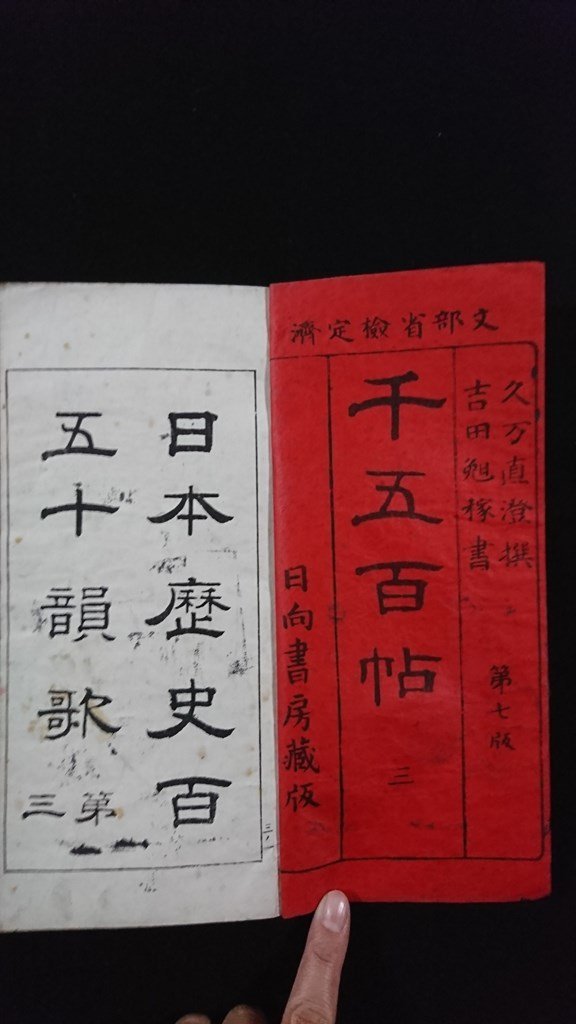 文部省檢定濟
久万直澄撰
吉田勉稼書
第七版
千五百帖
三
日向書房藏版
日本歷史百
五十韻歌
第三